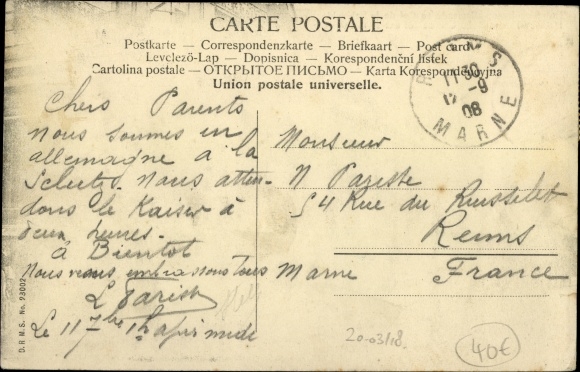 CARTE POSTALE
Postkarte — Correspondenzkarte — Briefkaart — Post card
Levelező-Lap — Dopisnica — Korespondenční lístek
Cartolina postale — ОТКРЫТОЕ ПИСЬМО — Karta Korespondencyjna
Union postale universelle.
11 30
12 -9
08
MARNE
Chers Parents
Nous sommes en
allemagne a la
Nous atten-
dons le Kaiser à
deux heures.
à Bientot
Nous vous nous Tous
Le 11 7bre 1h apri midi
Monsieur
54 Rue du Ruisselet
Reims
Marne France
D.R.M.S. No. 93002
20-03/18.
40€